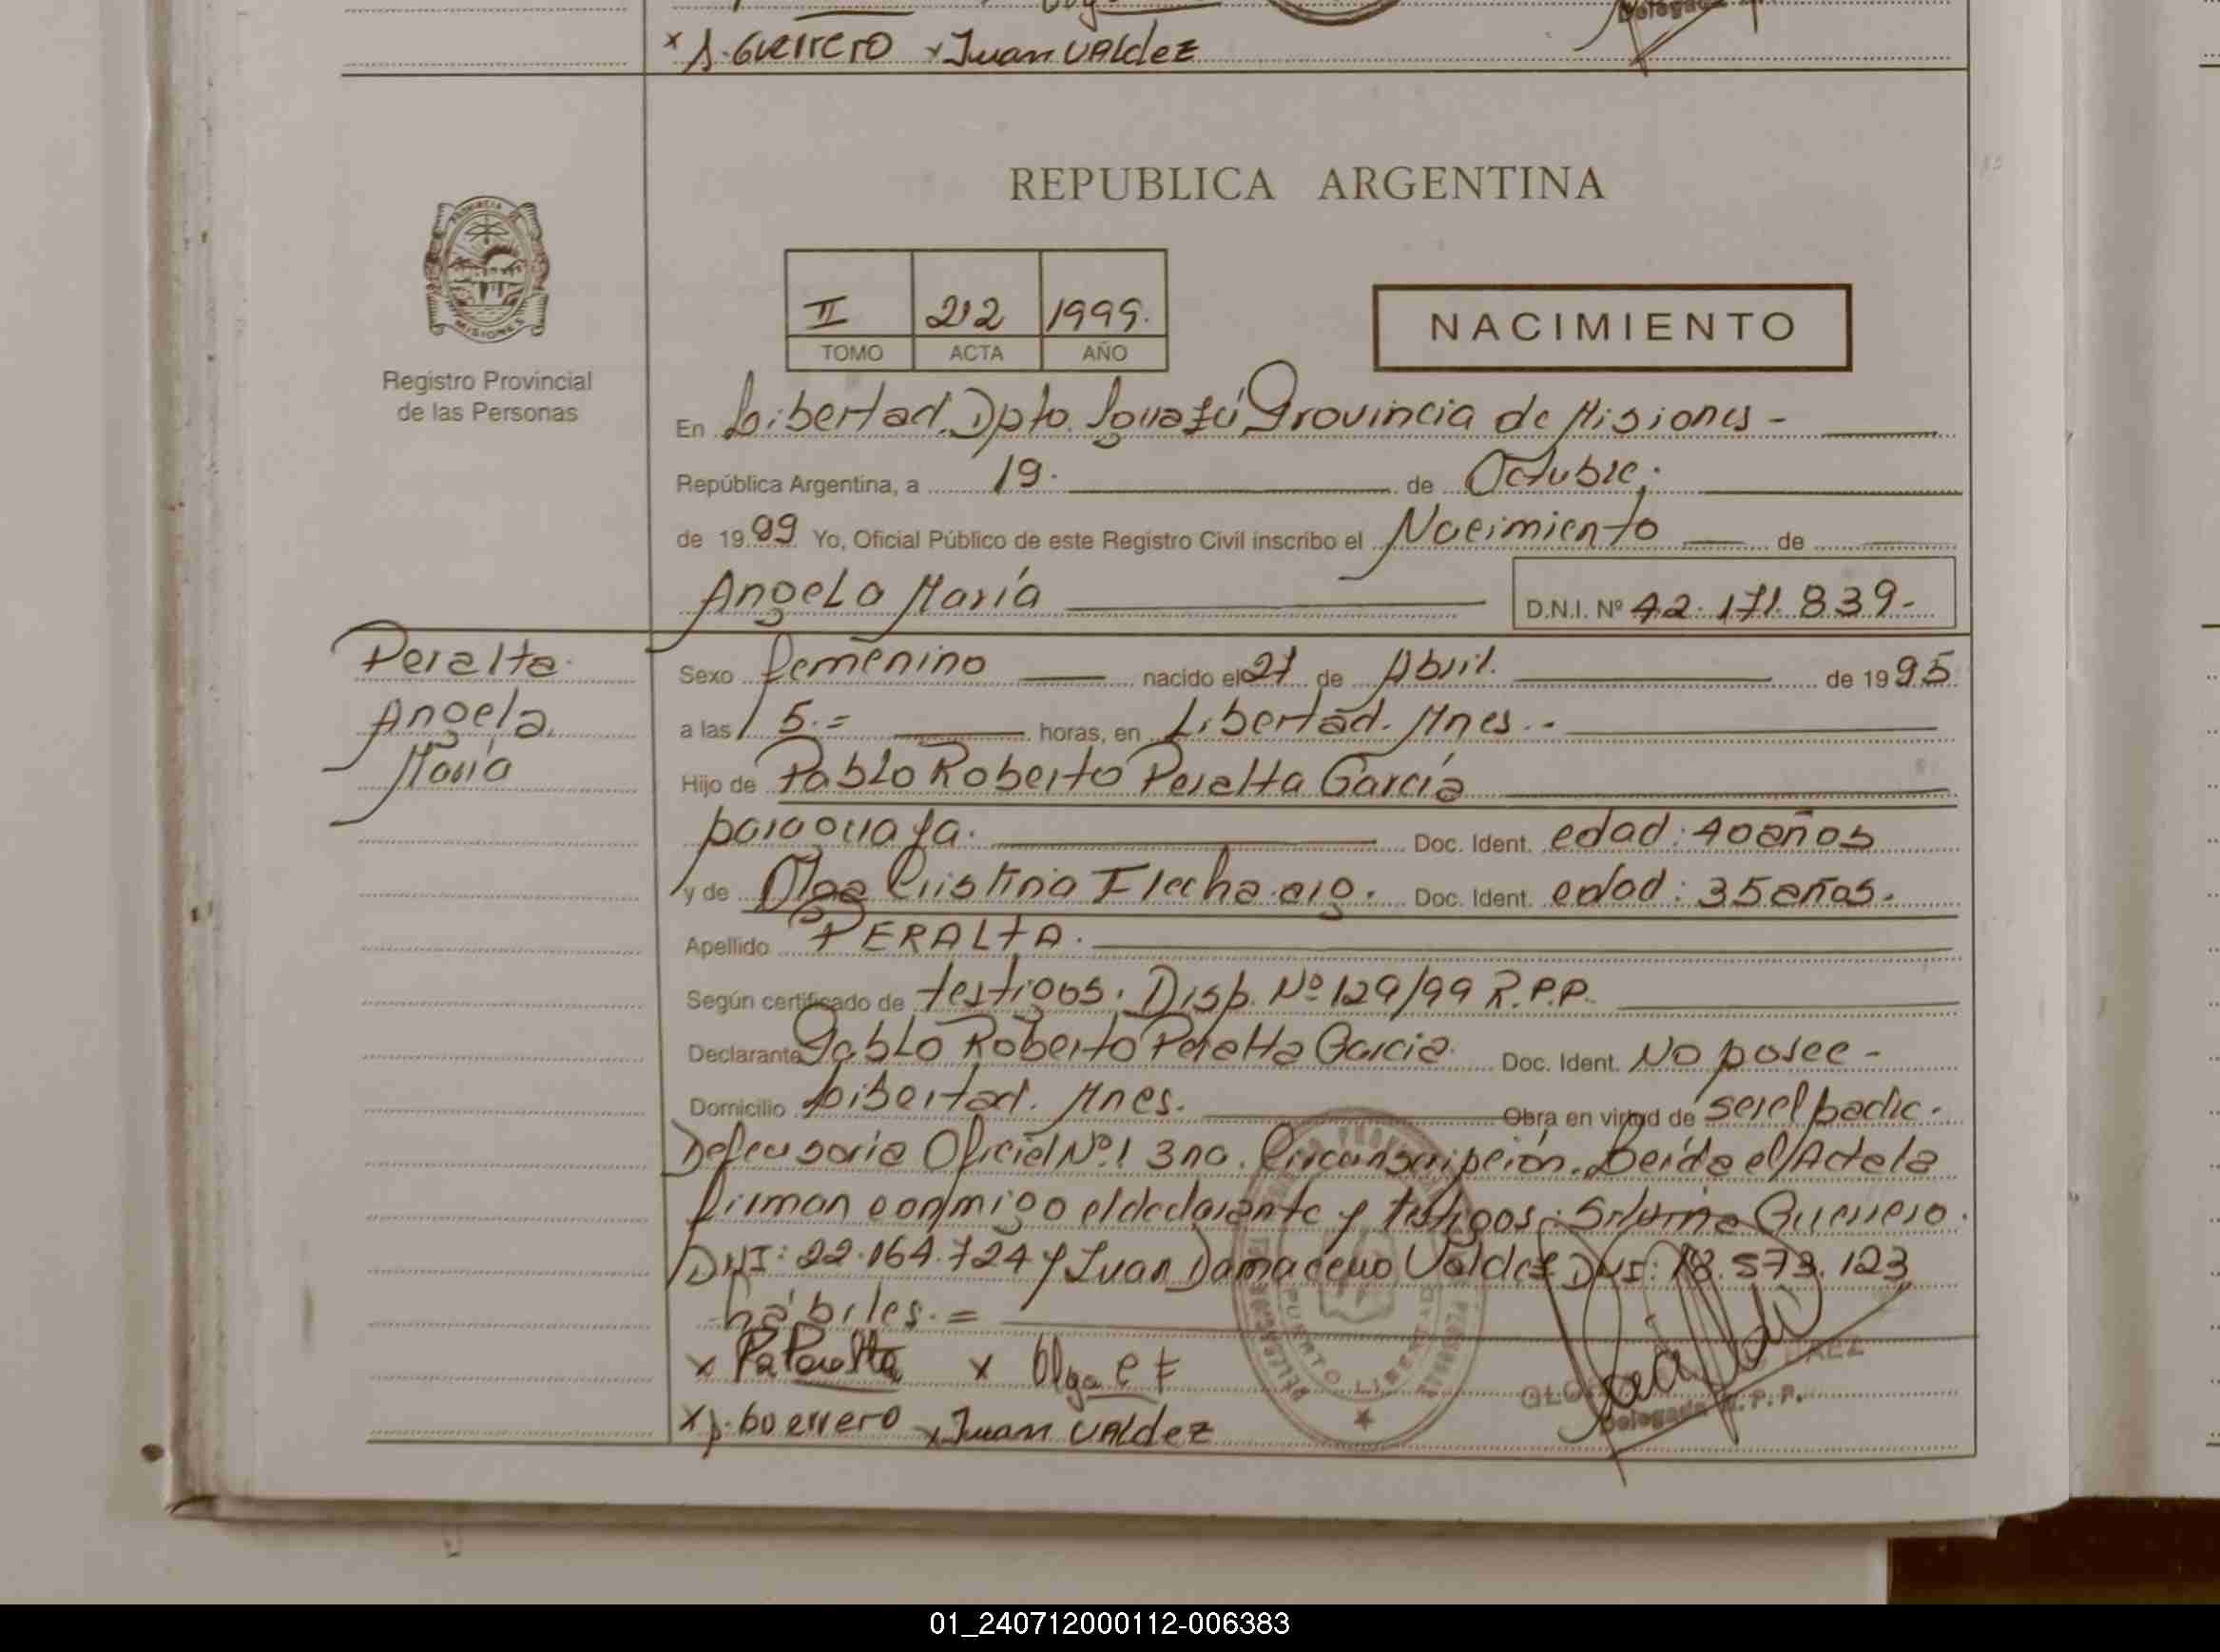 x S. Guerrero x Juan Valdez
REPUBLICA ARGENTINA
PROVINCIA DE MISIONES
Registro Provincial
de las Personas
II 212 1999.
TOMO ACTA AÑO
NACIMIENTO
En Libertad. Dpto. Iguazú Provincia de Misiones -
República Argentina, a 19. de Octubre.
de 1999 Yo, Oficial Público de este Registro Civil inscribo el Nacimiento de
Angela María D.N.I. Nº 42.171.839-
Peralta
Angela
María
Sexo femenino nacido el 27 de Abril. de 1995
a las 15.= horas, en Libertad. Mnes. -
Hijo de Pablo Roberto Peralta García
paraguaya. Doc. Ident. edad: 40 años
y de Olga Cristina Flecha arg. Doc. Ident. edad: 35 años.
Apellido PERALTA.
Según certificado de testigos. Disp. Nº 129/99 R.P.P.
Declarante Pablo Roberto Peralta Garcia. Doc. Ident. No posee -
Domicilio Libertad. Mnes. Obra en virtud de ser el padre.
Defensoria Oficial Nº 1 3ra. Circunscripción. Leída el Acta la
firman conmigo el declarante y testigos: Silvina Guerrero.
DNI: 22.164.724 y Juan Damaceno Valdez DNI: 18.573.123
hábiles. =
x Pa Peralta x Olga C F
PUERTO LIBERTAD
Delegada R.P.P.
x S. Guerrero x Juan Valdez
01_240712000112-006383